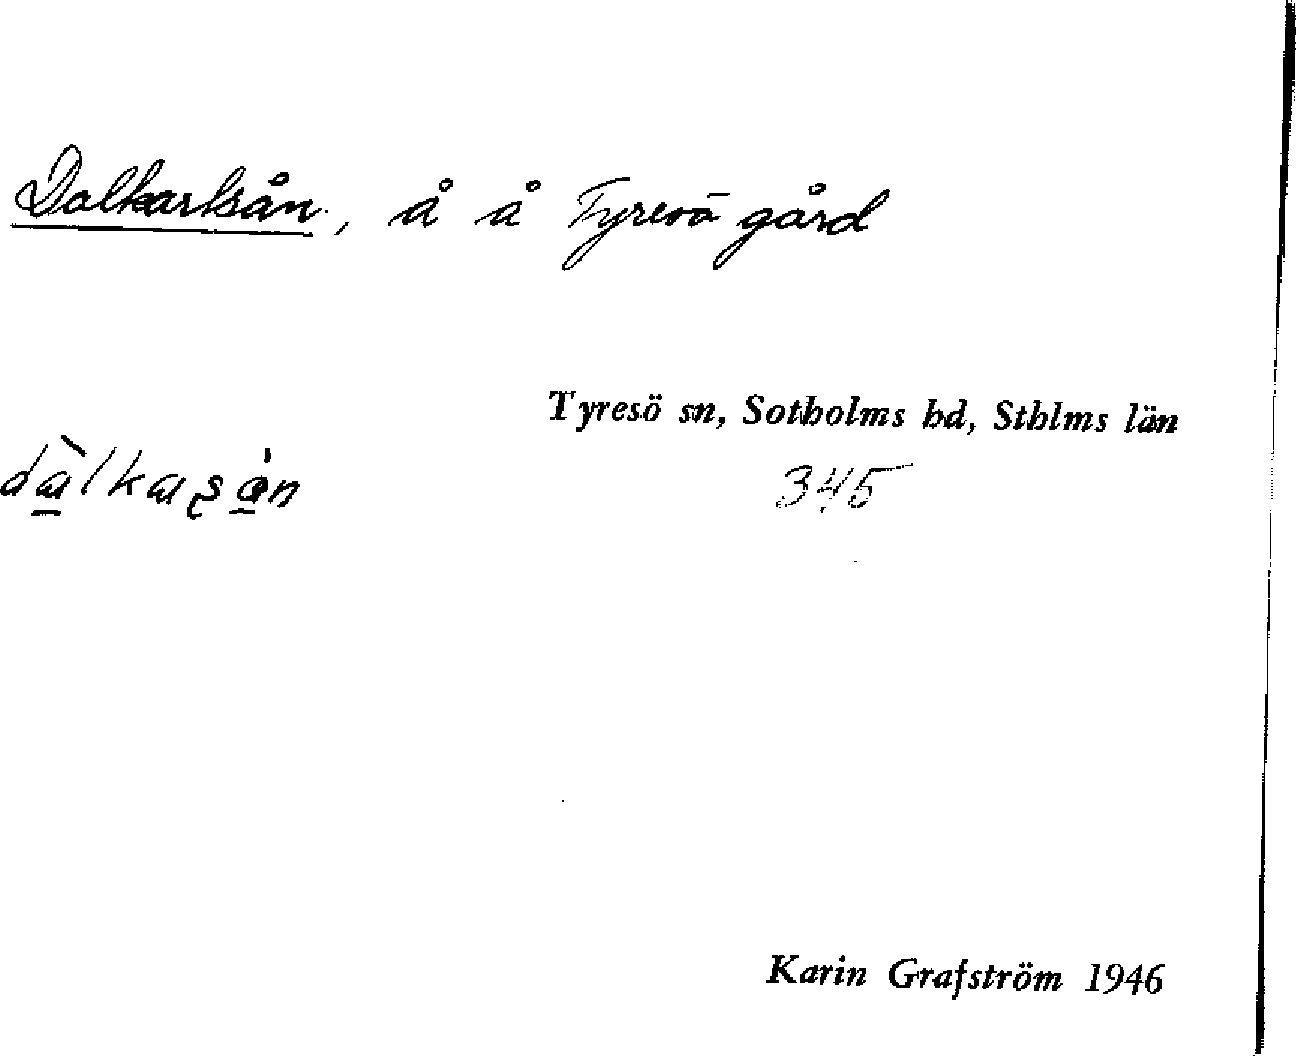 Dalkarlsån, å å Tyresö gård
Tyresö sn, Sotholms hd, Sthlms län
345
Karin Grafström 1946